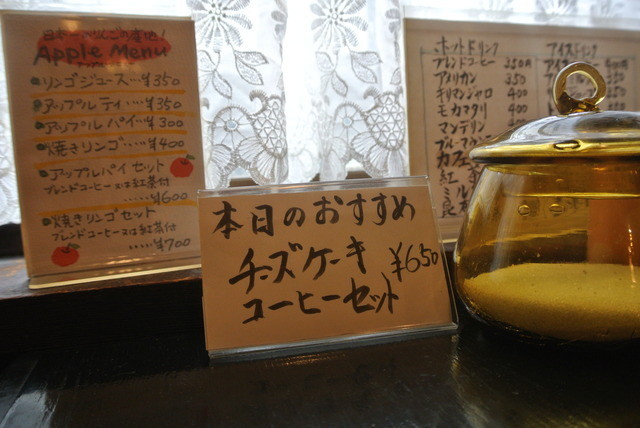 日本一のりんごの産地!
Apple Menu
リンゴジュース…¥350
アップルティ…¥350
アップルパイ…¥300
焼きリンゴ…¥400
アップルパイセット
ブレンドコーヒー又は紅茶付
……¥600
焼きリンゴセット
ブレンドコーヒー又は紅茶付
……¥700
本日のおすすめ
チーズケーキ
コーヒーセット
¥650
ホットドリンク
ブレンドコーヒー 350円
アメリカン 350
キリマンジャロ 400
モカマタリ 400
マンデリン 400
ブルーマ
カフェ
紅
ミル
アイスドリンク
アイ